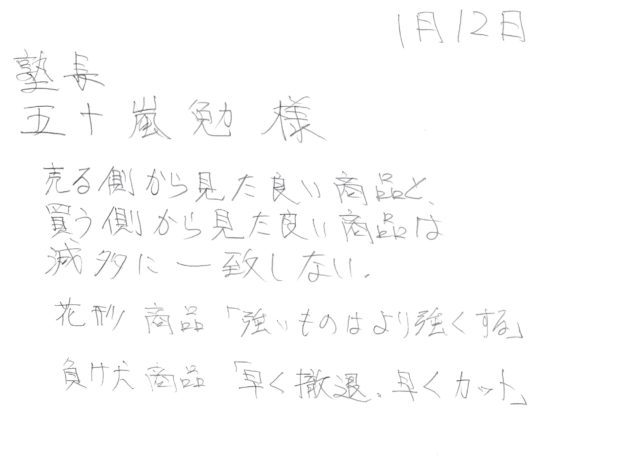 1月12日
塾長
五十嵐勉 様
売る側から見た良い商品と、
買う側から見た良い商品は
滅多に一致しない。
花形商品「強いものはより強くする」
負け犬商品「早く撤退。早くカット」